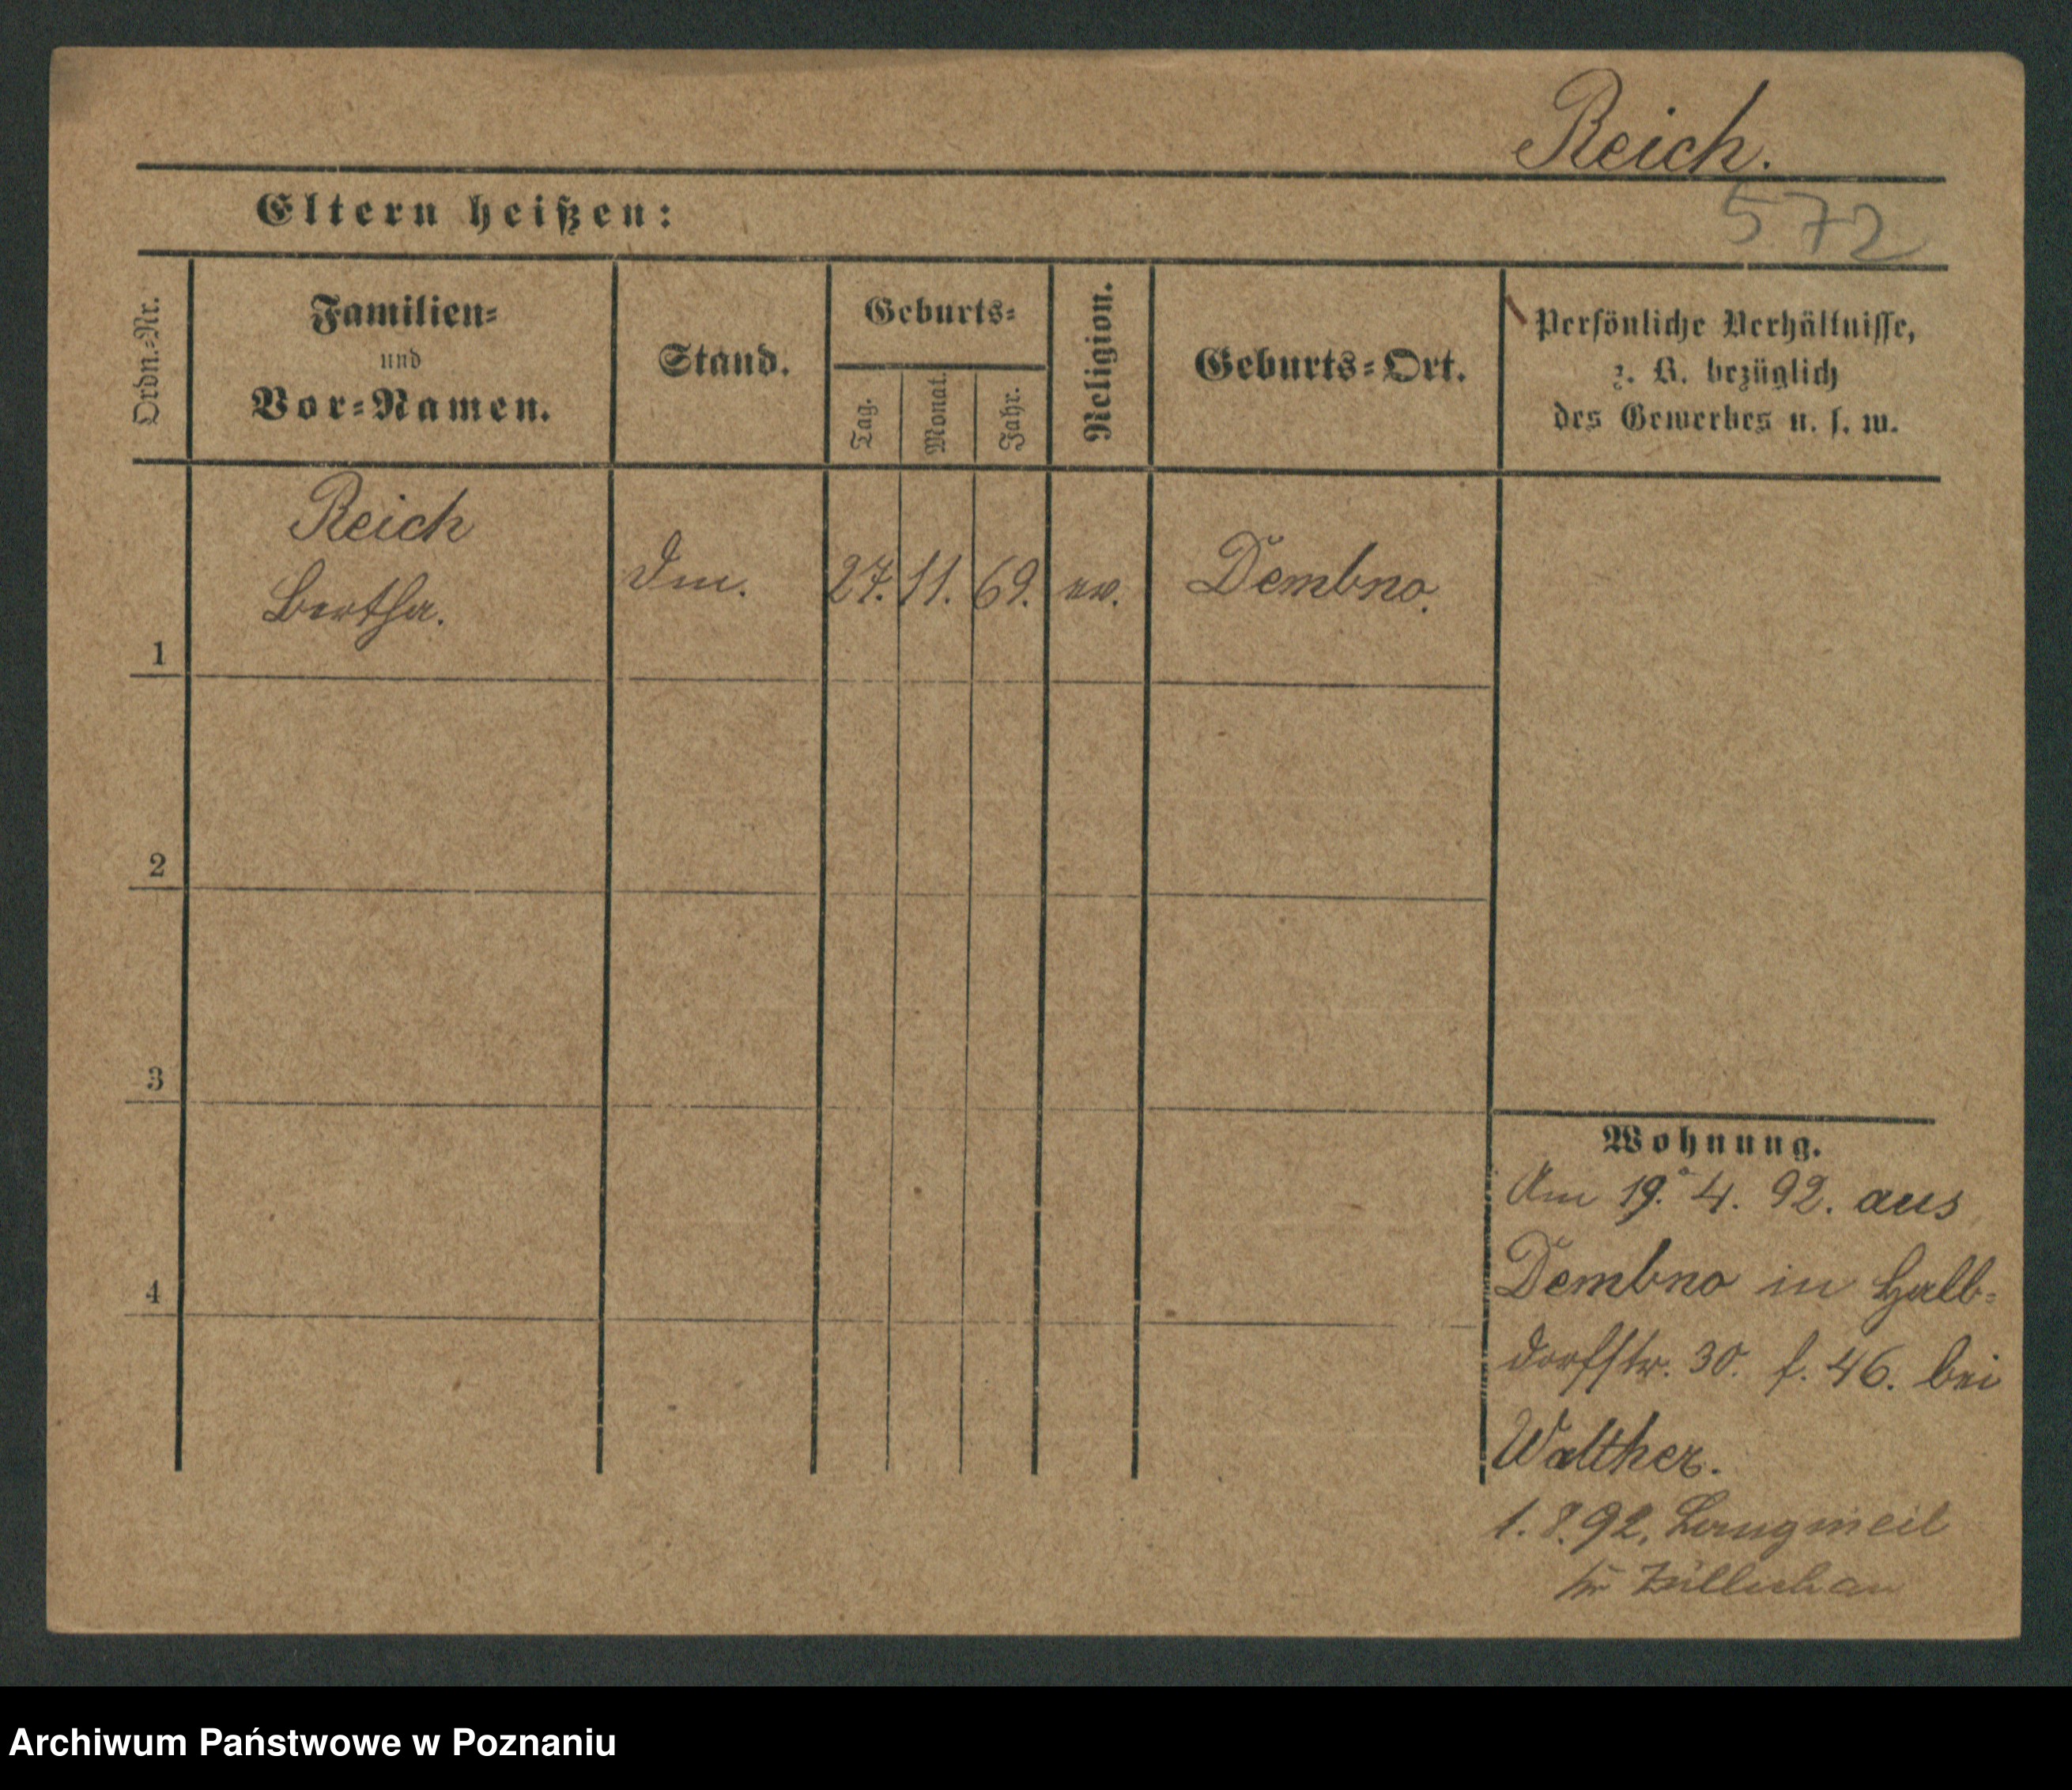 Reich.
572
Eltern heißen:
Ordn.-Nr.
Familien-
und
Vor-Namen.
Stand.
Geburts-
Tag.
Monat.
Jahr.
Religion.
Geburts-Ort.
Persönliche Verhältnisse,
z. B. bezüglich
des Gewerbes u. s. w.
1
Reich
Bertha.
Dm.
27.
11.
69.
ev.
Dembno.
2
3
4
Wohnung.
Am 19. 4. 92. aus
Dembno in Halb-
dorfstr. 30. f. 46. bei
Walther.
1. 8. 92, Langmeil
Kr Züllichau
Archiwum Państwowe w Poznaniu